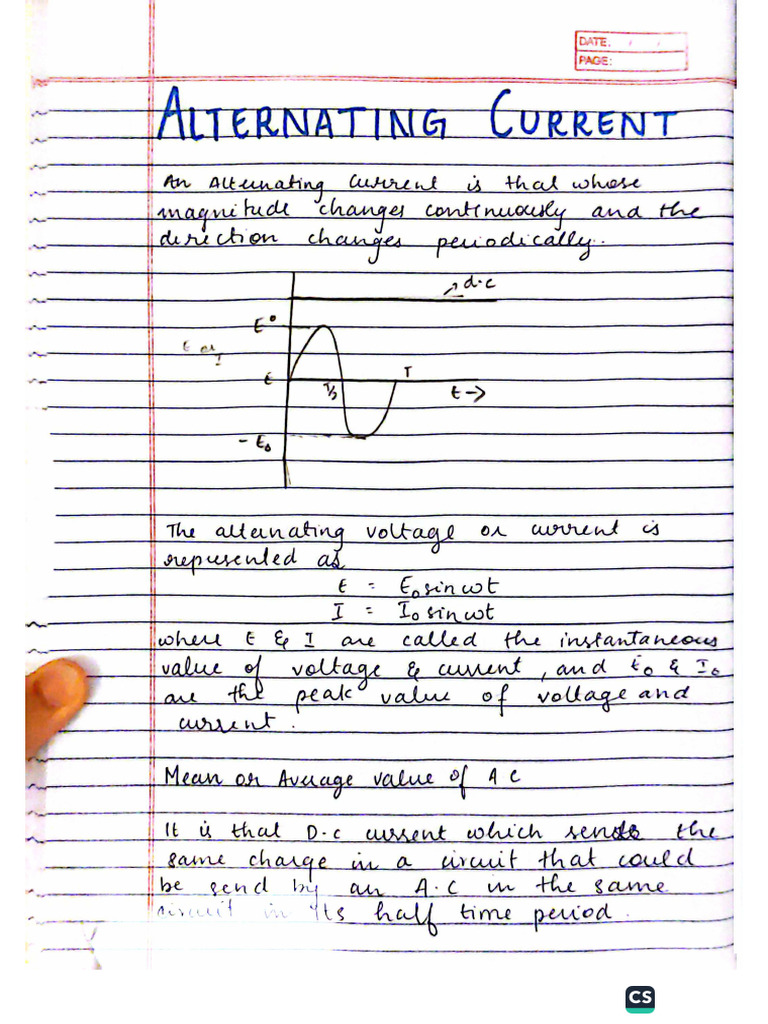 DATE: / /
PAGE:
ALTERNATING CURRENT
An Alternating Current is that whose
magnitude changes continuously and the
direction changes periodically.
d.c
E°
E or
I
E
T/2
T
t →
- E₀
The alternating voltage or current is
represented as
E = E₀ sin ωt
I = I₀ sin ωt
where E & I are called the instantaneous
value of voltage & current, and E₀ & I₀
are the peak value of voltage and
current.
Mean or Average value of A C
It is that D.C current which sends the
same charge in a circuit that could
be send by an A.C in the same
circuit in its half time period.
CS